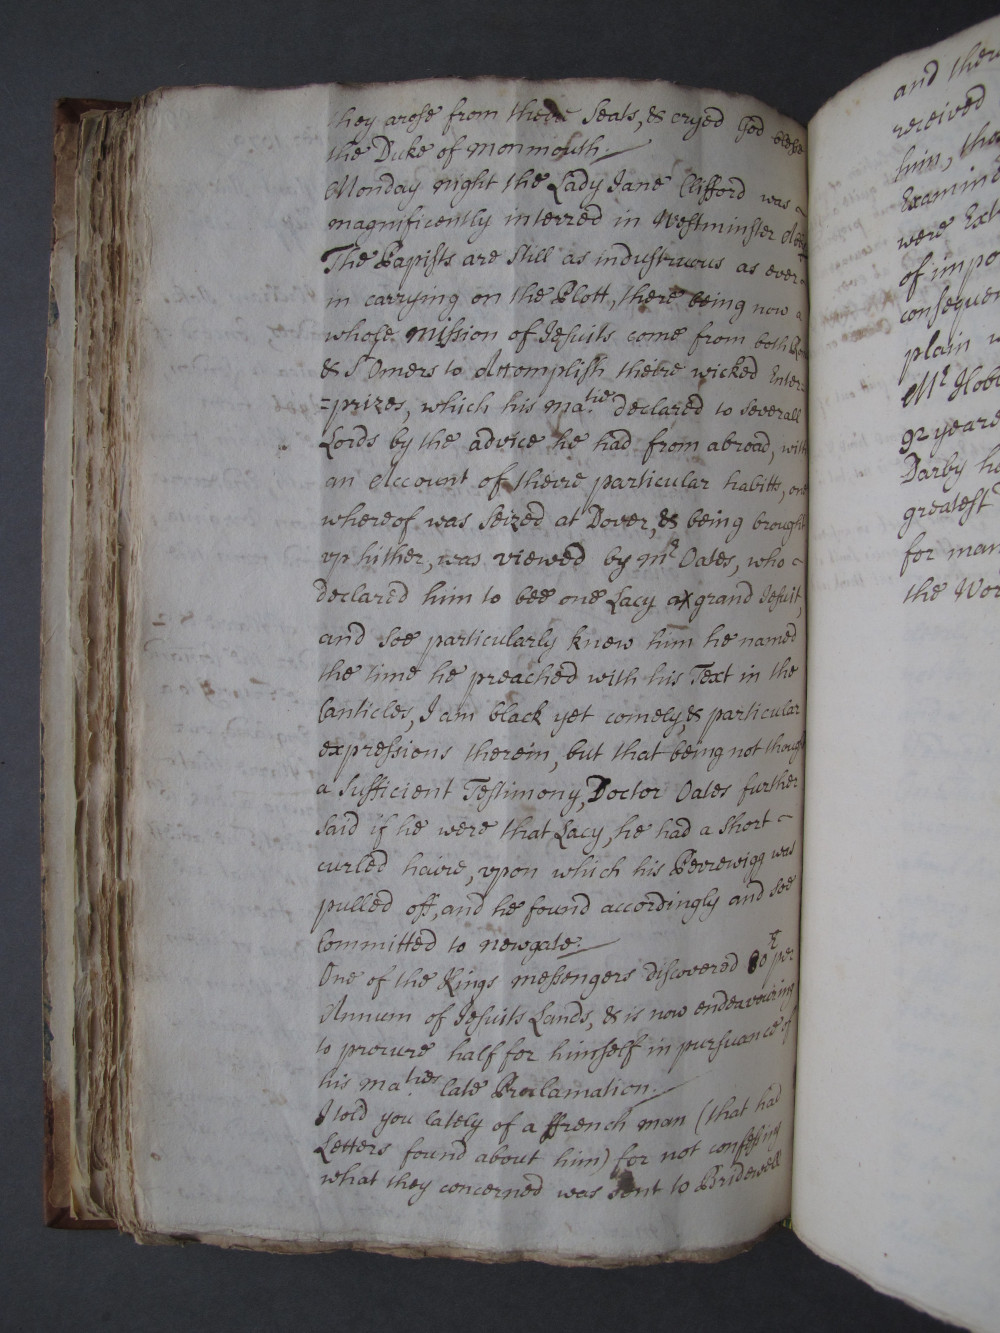 they arose from theire Seats, & cryed God blesse
the Duke of Monmouth.
Monday night the Lady Jane Clifford was
magnificently interred in Westminster Abby
The Papists are still as industruous as ever
in carrying on the Plott, there being now a
whose mission of Jesuits come from both
& St Omers to Accomplish theire wicked Enter-
=prizes, which his Ma.tie declared to severall
Lords by the advice he had from abroad, with
an Account of theire particular habitts, one
whereof was seized at Dover, & being brought
vp hither, was viewed by Mr Oates, who
declared him to bee one Lacy a grand Jesuit,
and soe particularly knew him he named
the time he preached with his Text in the
Canticles, I am black yet comely, & particular
expressions therein, but that being not thought
a sufficient Testimony, Doctor Oates further
said if he were that Lacy, he had a short
curled haire, vpon which his Perrewigg was
pulled off, and he found accordingly and soe
Committed to Newgate.
One of the Kings messengers discovered per
Annum of Jesuits Lands, & is now endeavouring
to procure half for himself in pursuance of
his Ma.ties late Proclamation.
I told you lately of a ffrench man (that had
Letters found about him) for not confessing
what they concerned was sent to Bridewell
and there
received
him, tha
Examine
were Ext
of impo
consequen
plain w
Mr Hobb
92 yeare
Darby ho
greatest
for man
the Wor